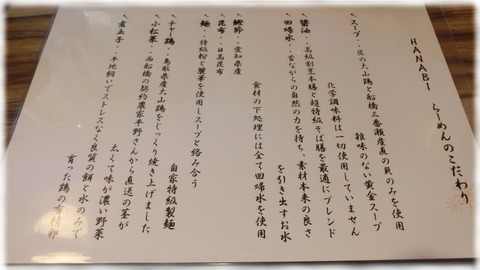 HANABI らーめんのこだわり
・スープ・・匠の大山鶏と船橋三番瀬産直の貝のみを使用
雑味のない黄金スープ
化学調味料は一切使用していません
・醤油・・高級割烹本膳と超特級そば膳を最適にブレンド
・回帰水・・昔ながらの自然の力を持ち、素材本来の良さ
を引き出すお水
食材の下処理には全て回帰水を使用
・鰹節・・愛知県産
・昆布・・日高昆布
・麺・・特級粉と麗華を使用しスープと絡み合う
自家特級製麺
・チャー鶏・・鳥取県産大山鶏をじっくり焼き上げました
・小松菜・・西船橋の契約農家平野さんから直送の茎が
太くて味が濃い野菜
・煮玉子・・平地飼いでストレスなく良質の餌と水のみで
育った鶏の有精卵